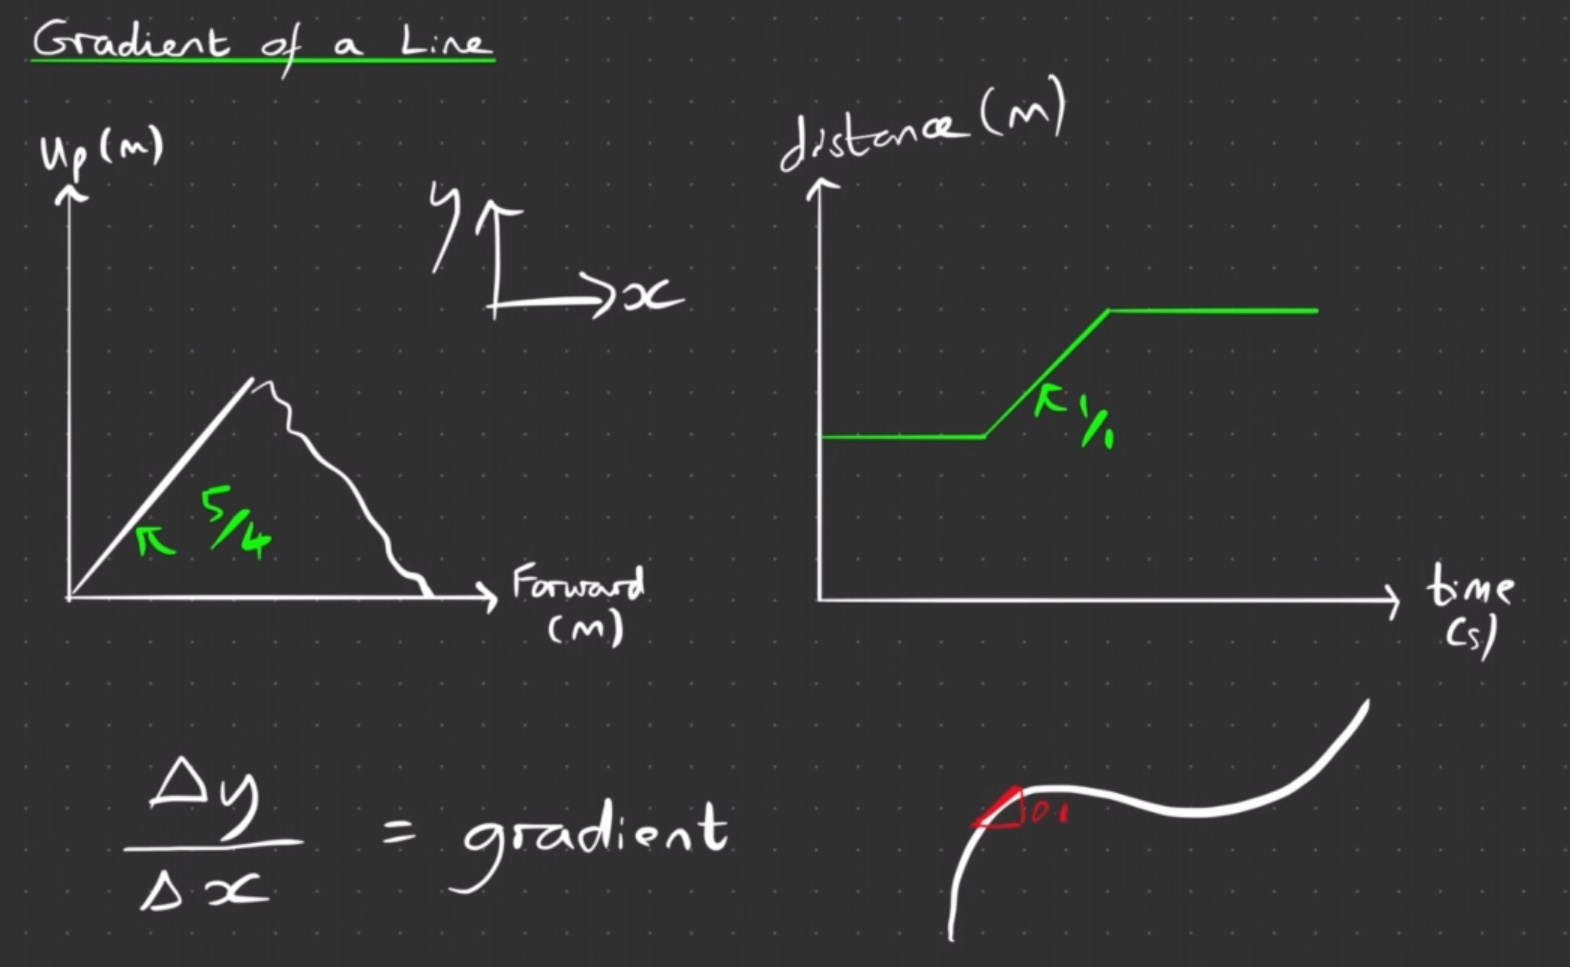 Gradient of a Line
Up (m)
5/4
Forward
(m)
y
x
distance (m)
1/1
time
(s)
Δy
Δx
= gradient
0.1